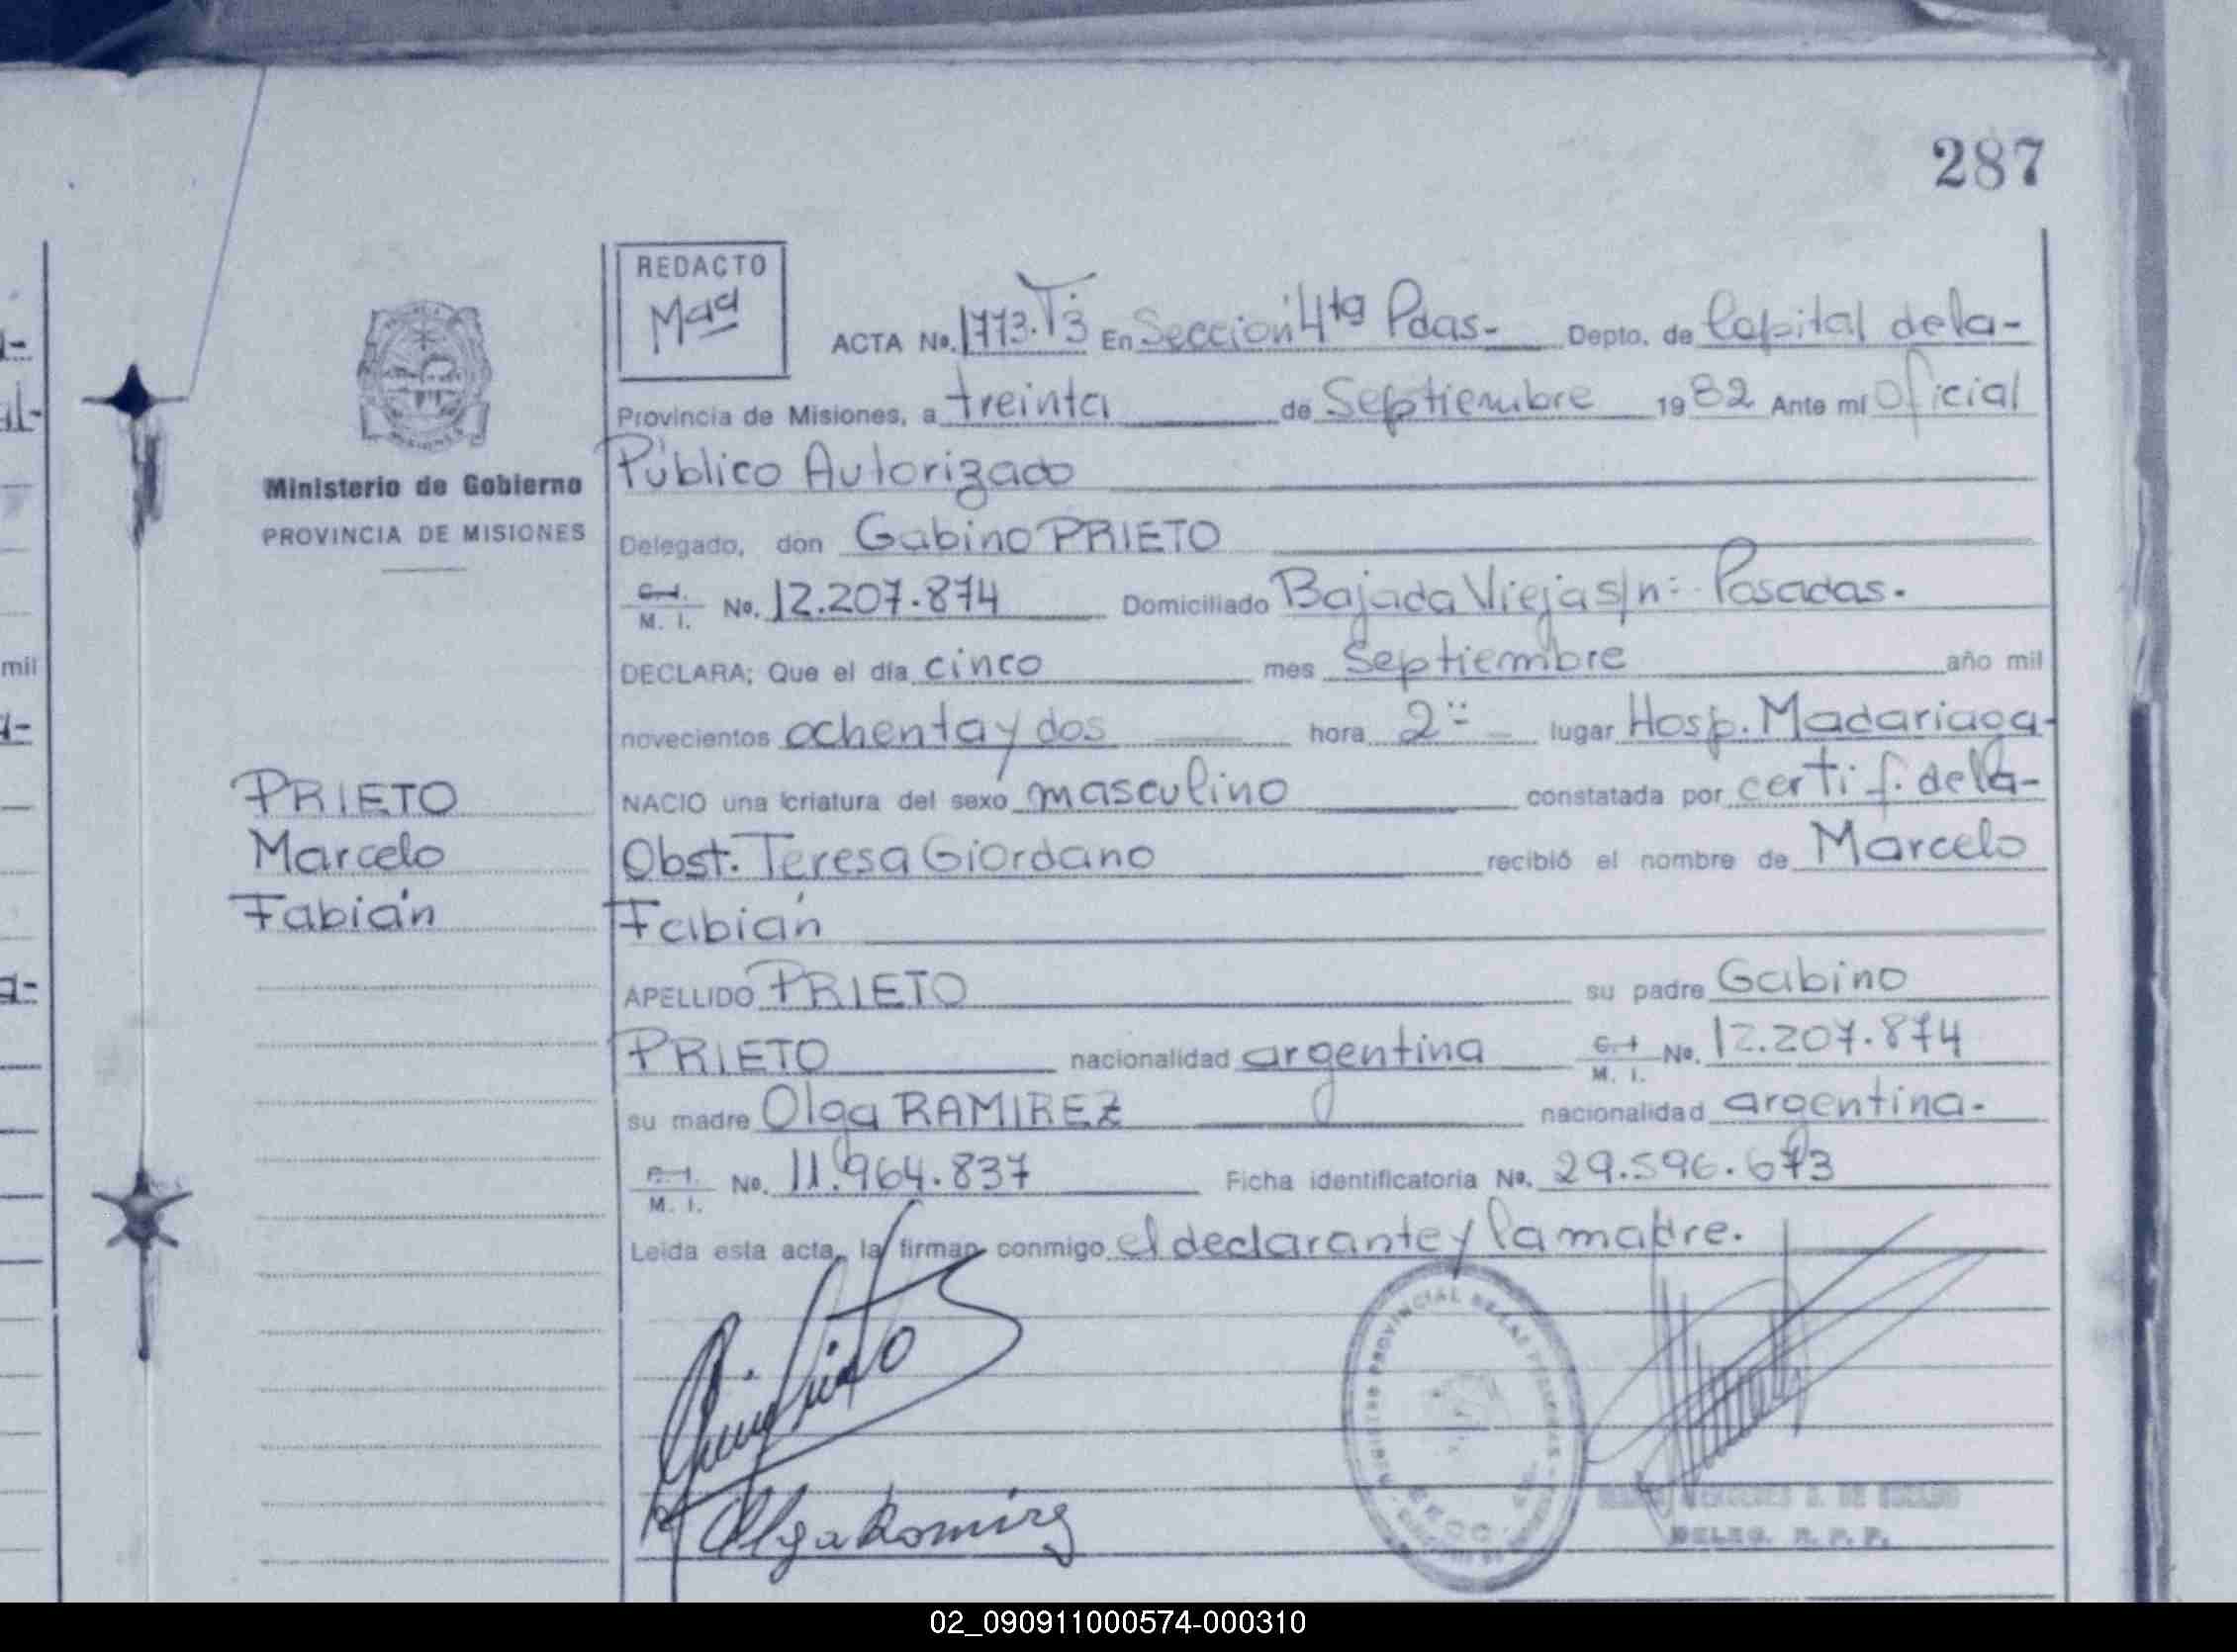 287
REDACTO
Maa
ACTA No. 1773.T3 En Sección 4ta Pdas- Depto. de Capital de la-
Provincia de Misiones, a treinta de Septiembre 1982 Ante mí Oficial
Público Autorizado
Ministerio de Gobierno
PROVINCIA DE MISIONES
Delegado, don Gabino PRIETO
C. I.
M. I. No. 12.207.874 Domiciliado Bajada Vieja s/n: Posadas.
DECLARA; Que el día cinco mes Septiembre año mil
novecientos ochenta y dos hora 2:: lugar Hosp. Madariaga-
NACIO una criatura del sexo masculino constatada por certif. de la-
Obst. Teresa Giordano recibió el nombre de Marcelo
Fabián
PRIETO
Marcelo
Fabián
APELLIDO PRIETO su padre Gabino
PRIETO nacionalidad argentina C. I. M. I. No. 12.207.874
su madre Olga RAMIREZ nacionalidad argentina-
C. I.
M. I. No. 11.964.837 Ficha identificatoria No. 29.596.673
Leída esta acta, la firman conmigo el declarante y la madre.
Olga Ramirez
DELEG. R. P. P.
mil
02_090911000574-000310